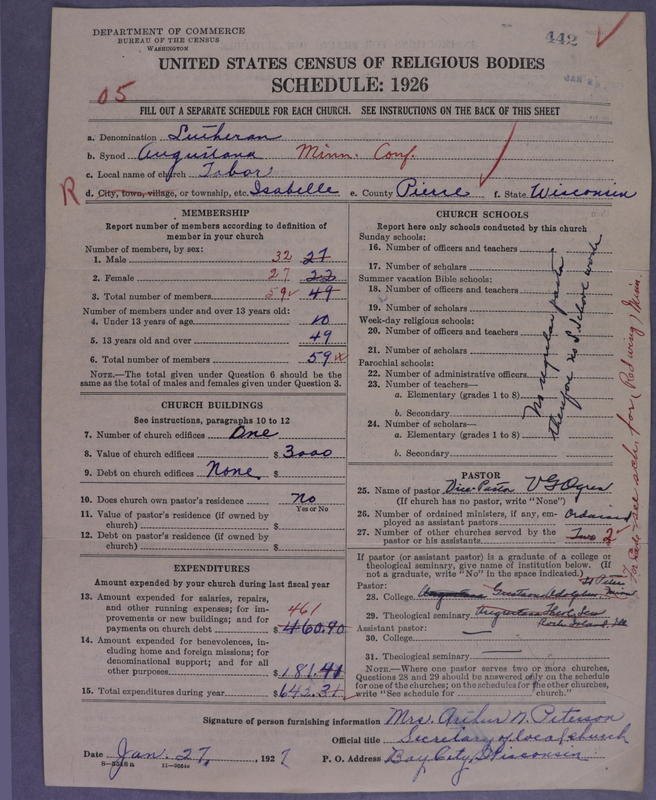 DEPARTMENT OF COMMERCE
BUREAU OF THE CENSUS
WASHINGTON
442
UNITED STATES CENSUS OF RELIGIOUS BODIES
SCHEDULE: 1926
05
FILL OUT A SEPARATE SCHEDULE FOR EACH CHURCH. SEE INSTRUCTIONS ON THE BACK OF THIS SHEET
a. Denomination Lutheran
b. Synod Augustana Minn. Conf.
c. Local name of church Tabor
R d. City, town, village, or township, etc. Isabelle e. County Pierce f. State Wisconsin
MEMBERSHIP
Report number of members according to definition of member in your church
Number of members, by sex:
1. Male 32 27
2. Female 27 22
3. Total number of members 59 49
Number of members under and over 13 years old:
4. Under 13 years of age 10
5. 13 years old and over 49
6. Total number of members 59
NOTE.—The total given under Question 6 should be same as the total of males and females given under Question 3.
CHURCH BUILDINGS
See instructions, paragraphs 10 to 12
7. Number of church edifices One
8. Value of church edifices $ 3000
9. Debt on church edifices None $
10. Does church own pastor's residence No
Yes or No
11. Value of pastor's residence (if owned by church) $
12. Debt on pastor's residence (if owned by church) $
EXPENDITURES
Amount expended by your church during last fiscal year
13. Amount expended for salaries, repairs, and other running expenses; for improvements or new buildings; and for payments on church debt 461 $ 460.90
14. Amount expended for benevolences, including home and foreign missions; for denominational support; and for all other purposes $ 181.41
15. Total expenditures during year $ 642.31
CHURCH SCHOOLS
Report here only schools conducted by this church
Sunday schools:
16. Number of officers and teachers
17. Number of scholars
Summer vacation Bible schools:
18. Number of officers and teachers
19. Number of scholars
Week-day religious schools:
20. Number of officers and teachers
21. Number of scholars
Parochial schools:
22. Number of administrative officers
23. Number of teachers—
a. Elementary (grades 1 to 8)
b. Secondary
24. Number of scholars—
a. Elementary (grades 1 to 8)
b. Secondary
No regular pastor
therefore no S. School work
PASTOR
25. Name of pastor Vice-Pastor V G Ogren
(If church has no pastor, write "None")
26. Number of ordained ministers, if any, employed as assistant pastors Ordained
27. Number of other churches served by the pastor or his assistants Two 2
If pastor (or assistant pastor) is a graduate of a college or theological seminary, give name of institution below. (If not a graduate, write "No" in the space indicated.)
Pastor:
28. College Augustana Gustavus Adolphus, St Peter Minn
29. Theological seminary Augustana Theol. Sem
Rock Island, Ill
Assistant pastor:
30. College —
31. Theological seminary —
NOTE.—Where one pastor serves two or more churches, Questions 28 and 29 should be answered only on the schedule for one of the churches; on the schedules for the other churches, write "See schedule for church."
see sch. for Red Wing, Minn.
Signature of person furnishing information Mrs. Arthur N. Peterson
Official title Secretary of local church
Date Jan. 27, 1927 P. O. Address Bay City, Wisconsin